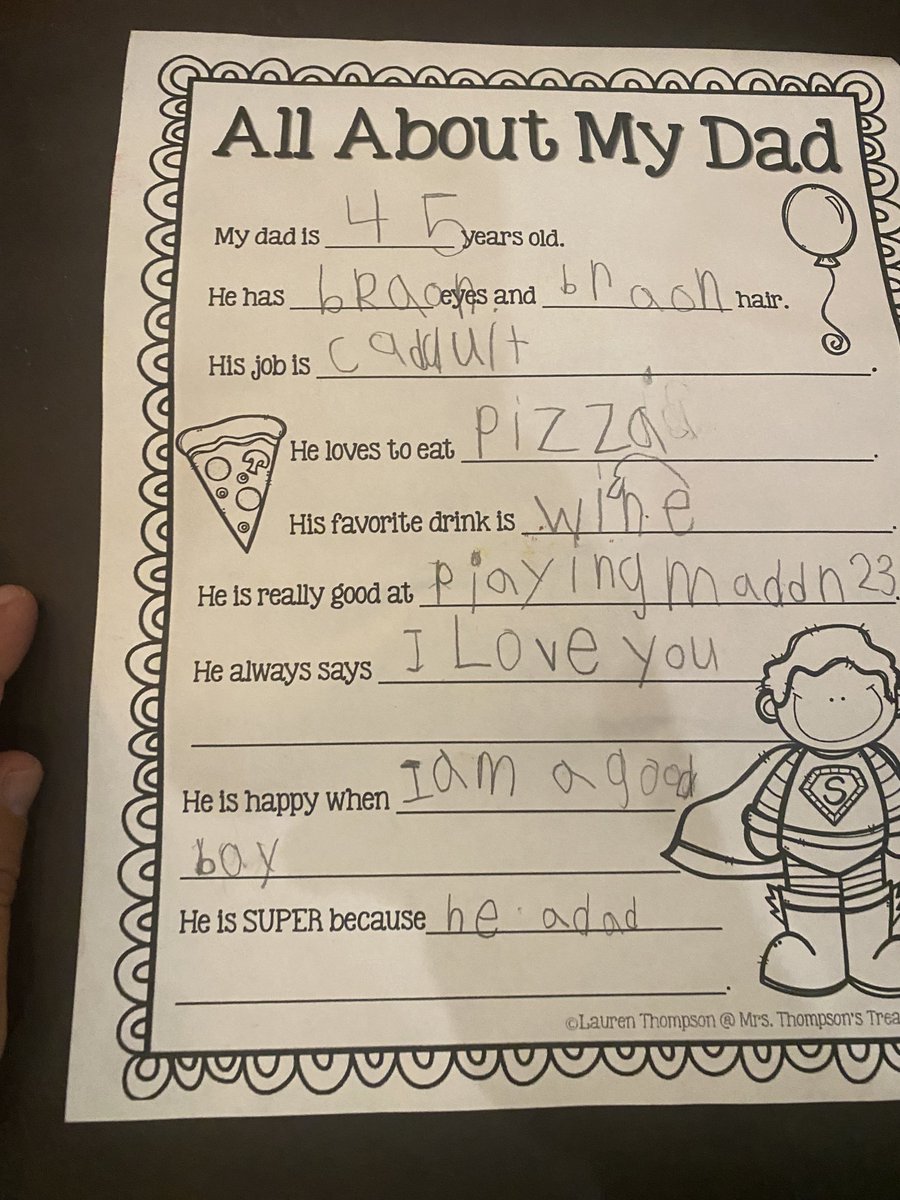 All About My Dad
My dad is 45 years old.
He has bRaon eyes and bnaon hair.
His job is caddult.
He loves to eat pizza.
His favorite drink is wine.
He is really good at playing maddn23.
He always says I Love you
He is happy when I am a good
boy
He is SUPER because he adad
.
©Lauren Thompson @ Mrs. Thompson's Trea
S